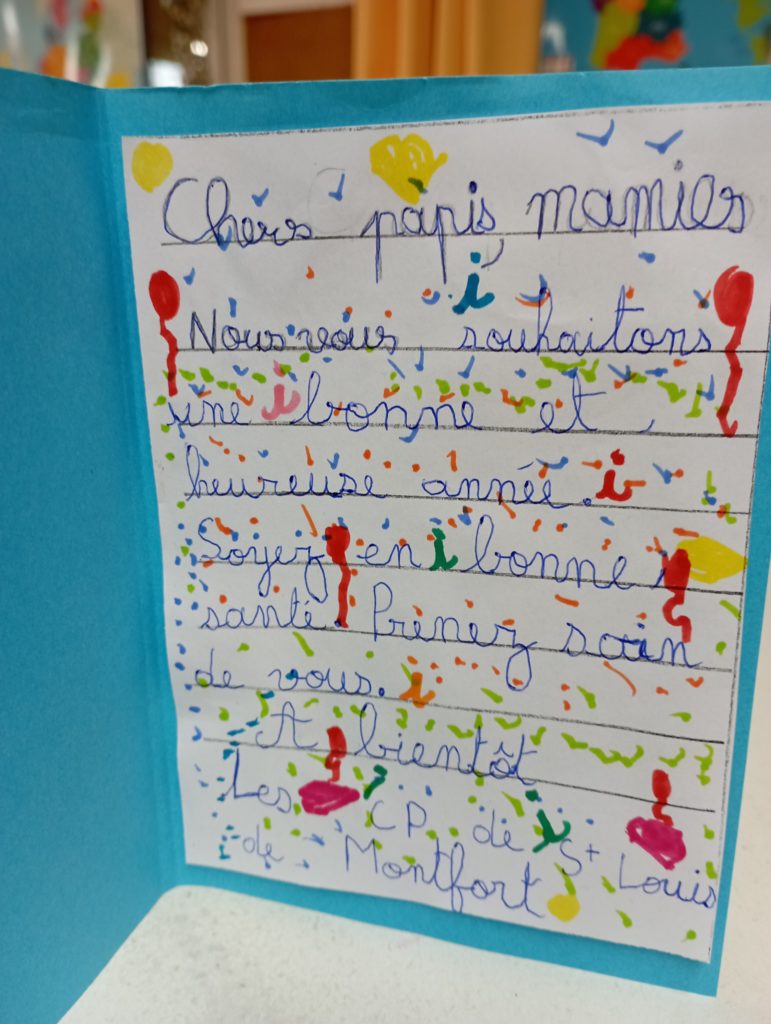 Chers papis, mamies
Nous vous souhaitons
une bonne et
heureuse année.
Soyez en bonne
santé. Prenez soin
de vous.
A bientôt
Les CP de St Louis
de Montfort